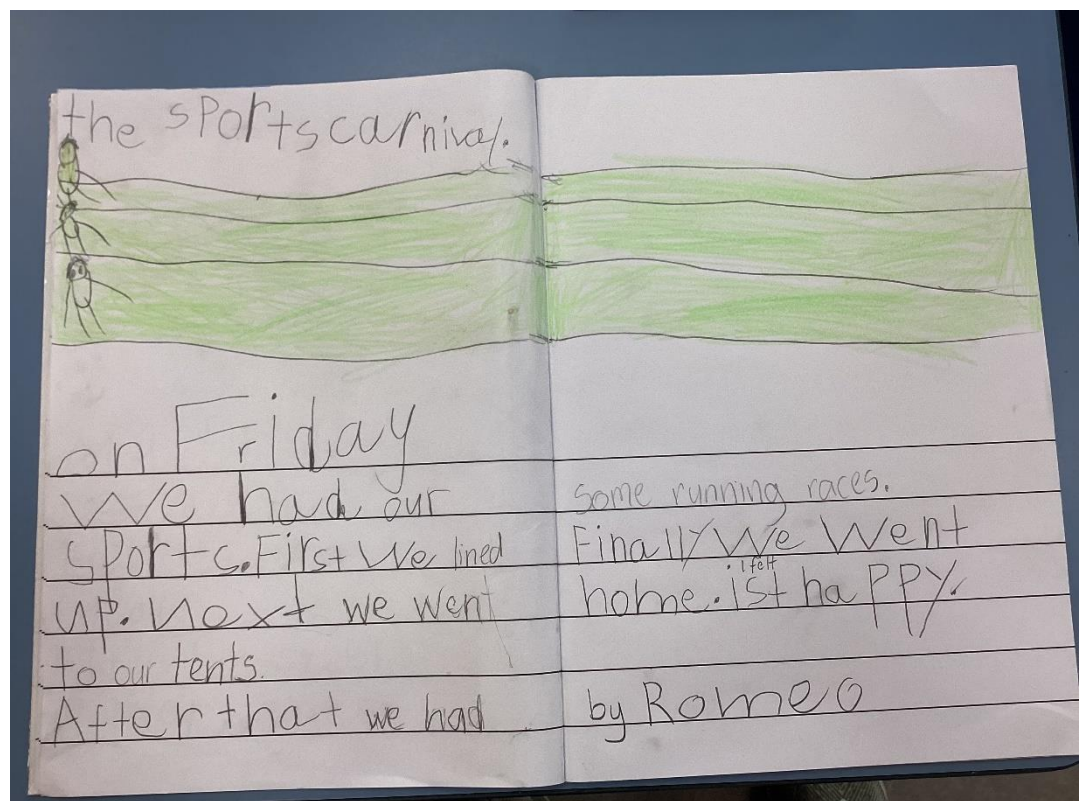 the sports carnival.
on Friday
we had our
sports. First We lined
up. next we went
to our tents.
After that we had
some running races.
Finally We Went
. I felt
home. ist haPPy.
by Romeo